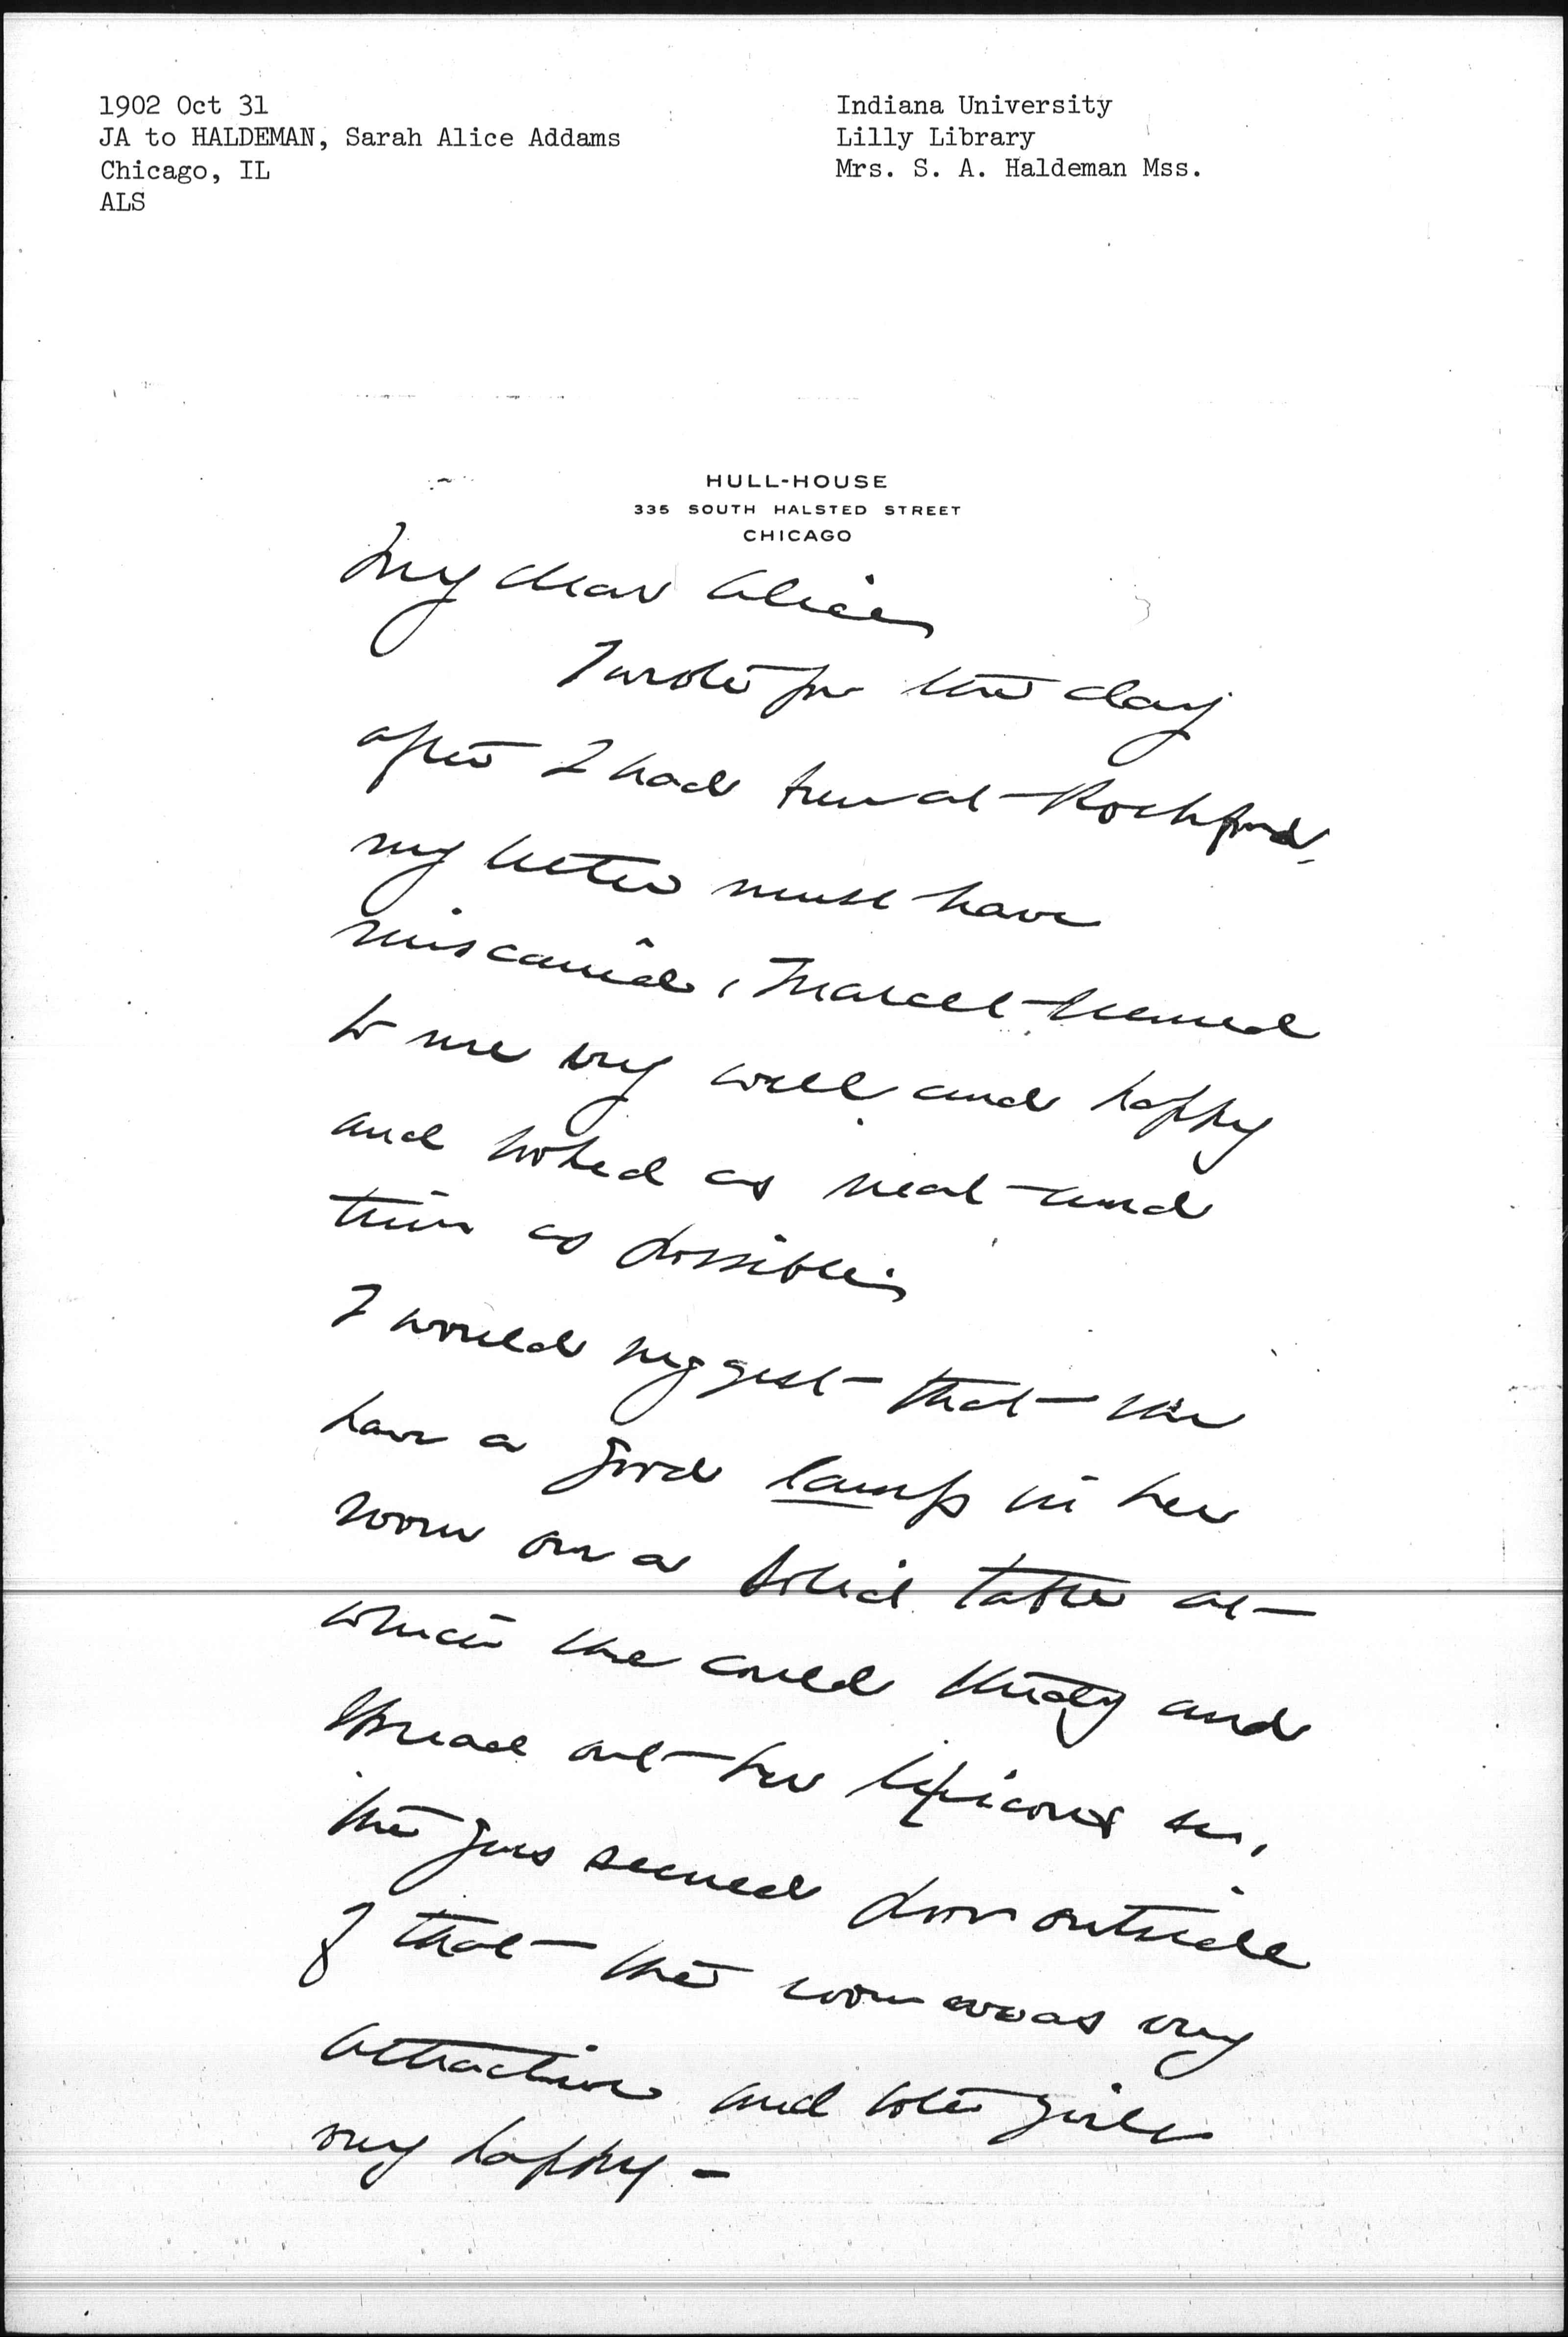 1902 Oct 31
JA to HALDEMAN, Sarah Alice Addams
Chicago, IL
ALS
Indiana University
Lilly Library
Mrs. S. A. Haldeman Mss.
HULL-HOUSE
335 SOUTH HALSTED STREET
CHICAGO
My dear Alice
I wrote you the day
after I had been at Rockford,
my letter must have
miscarried, Marcet seemed
to me very well and happy
and looked as neat and
trim as possible.
I would suggest that she
have a good lamp in her
room on a solid table at
which she could study and
spread out her lexicons
the gas seemed poor outside
of that the room was very
attractive and both girls
very happy -